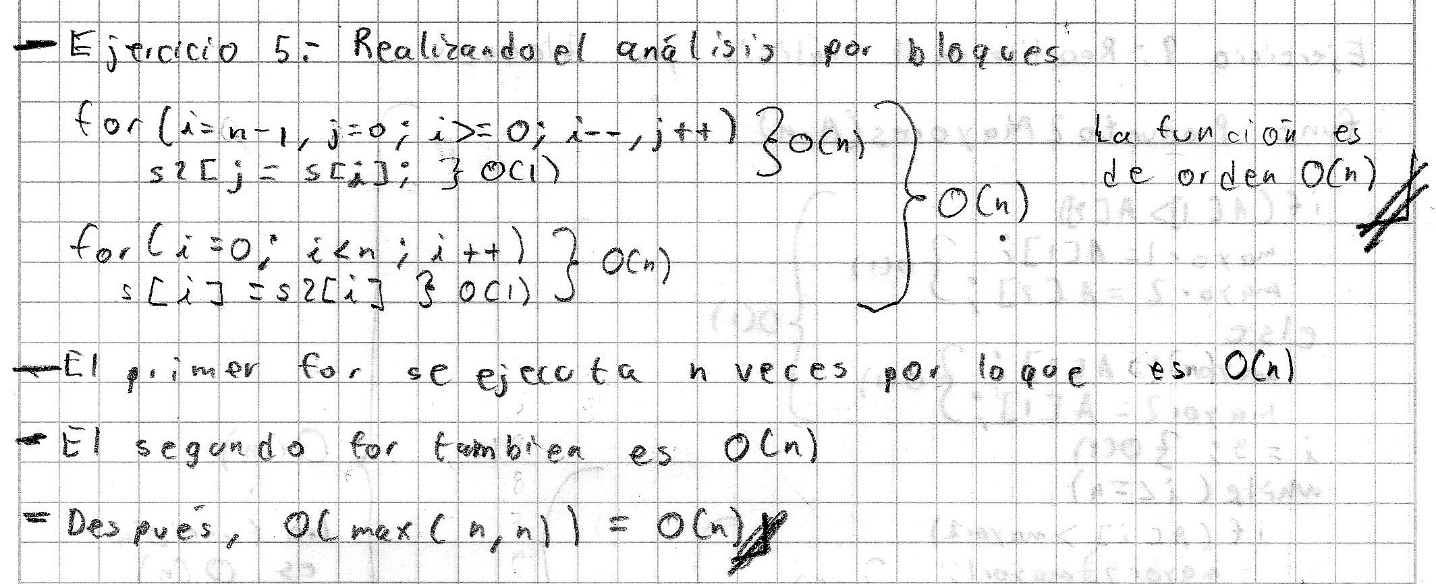 - Ejercicio 5:- Realizando el análisis por bloques
for (i=n-1, j=0; i>=0; i--, j++) } O(n)
s2[j = s[i]; } O(1)
for (i=0; i<n; i++) } O(n)
s[i] = s2[i] } O(1)
O(n)
La función es
de orden O(n)
- El primer for se ejecuta n veces por lo que es O(n)
- El segundo for tambien es O(n)
= Después, O(max(n,n)) = O(n)